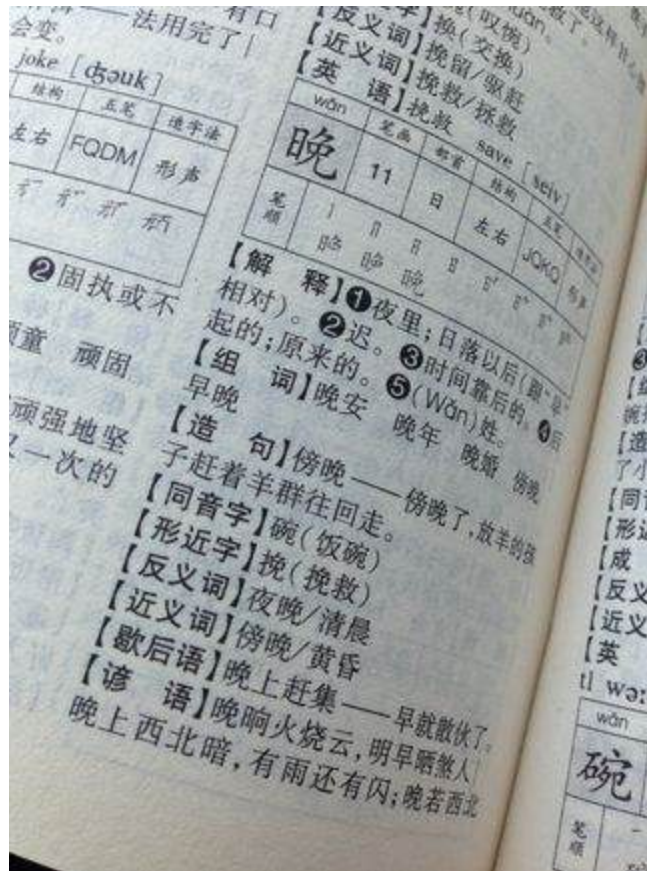 法用完了
会变。
joke [dʒəuk]
结构 五笔 造字法
左右 FQDM 形声
❷固执或不
童 顽固
顽强地坚
一次的
【反义词】换(交换)
【近义词】挽留/驱赶
【英 语】挽救/拯救
挽救 save [seiv]
wǎn 笔画 部首 结构 五笔 造字法
晚 11 日 左右 JQKQ 形声
笔顺
【解 释】❶夜里;日落以后(跟“早”
相对)。❷迟。❸时间靠后的。❹后
起的;原来的。❺(Wǎn)姓。
【组 词】晚安 晚年 晚婚 傍晚
早晚
【造 句】傍晚——傍晚了,放羊的孩
子赶着羊群往回走。
【同音字】碗(饭碗)
【形近字】挽(挽救)
【反义词】夜晚/清晨
【近义词】傍晚/黄昏
【歇后语】晚上赶集——早就散伙了。
【谚 语】晚晌火烧云,明早晒煞人|
晚上西北暗,有雨还有闪;晚若西北
【造
了小
【同音
【形近
【成
【反义
【近义
【英
wǎn
碗
笔顺